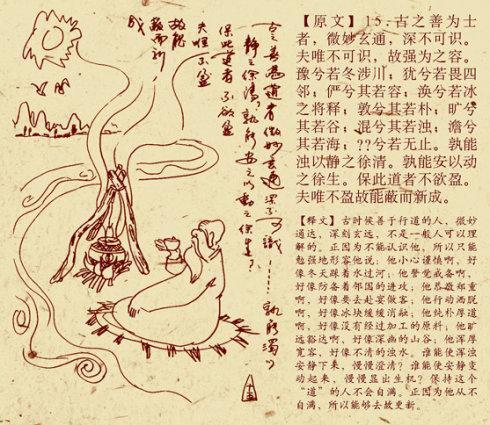 古之善为道者 微妙玄通 深不可识……孰能浊以
静之徐清？孰能安之以动之徐生？
保此道者 不欲盈
夫唯不盈
故能
蔽而新
成
【原文】15.古之善为士
者，微妙玄通，深不可识。
夫唯不可识，故强为之容。
豫兮若冬涉川；犹兮若畏四
邻；俨兮其若容；涣兮若冰
之将释；敦兮其若朴；旷兮
其若谷；混兮其若浊；澹兮
其若海；??兮若无止。孰能
浊以静之徐清。孰能安以动
之徐生。保此道者不欲盈。
夫唯不盈故能蔽而新成。
【释文】古时候善于行道的人，微妙
通达，深刻玄远，不是一般人可以理
解的。正因为不能认识他，所以只能
勉强地形容他说：他小心谨慎啊，好
像冬天踩着水过河；他警觉戒备啊，
好像防备着邻国的进攻；他恭敬郑重
啊，好像要去赴宴做客；他行动洒脱
啊，好像冰块缓缓消融；他纯朴厚道
啊，好像没有经过加工的原料；他旷
远豁达啊，好像深幽的山谷；他浑厚
宽容，好像不清的浊水。谁能使浑浊
安静下来，慢慢澄清？谁能使安静变
动起来，慢慢显出生机？保持这个
“道”的人不会自满。正因为他从不
自满，所以能够去故更新。